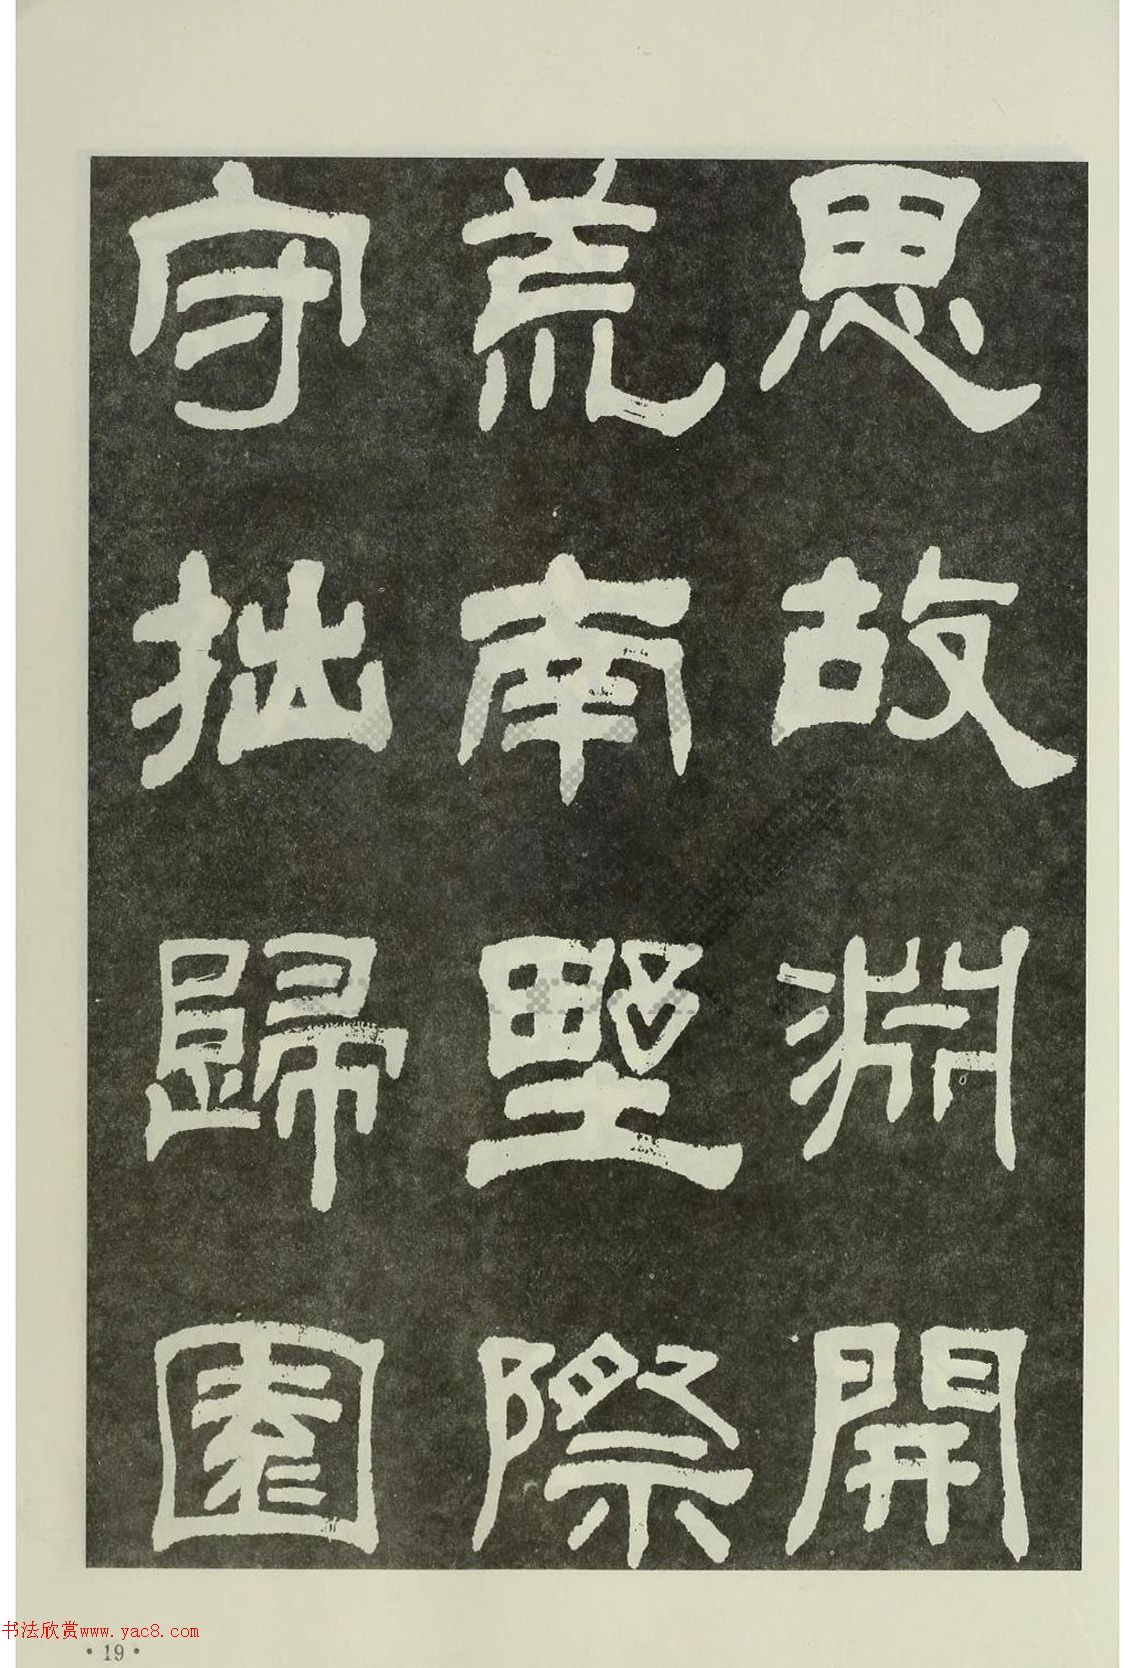 思故淵開
荒南野際
守拙歸園
书法欣赏www.yac8.com
·19·